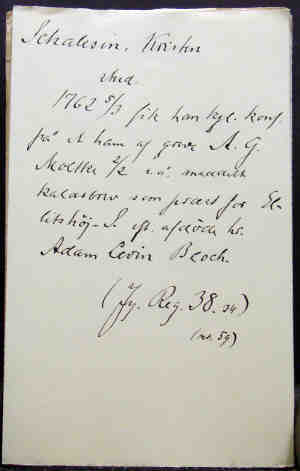 Schalesin, Kristen
stud.
1762 5/3 fik han kgl. konf.
på et ham af greve A. G.
Moltke 2/2 s.å. meddelt
kaldsbrev som præst for El-
litshöj-S. eft. afdöde hr.
Adam Levin Bloch.
(Jy. Reg. 38. 34)
(nr. 59)